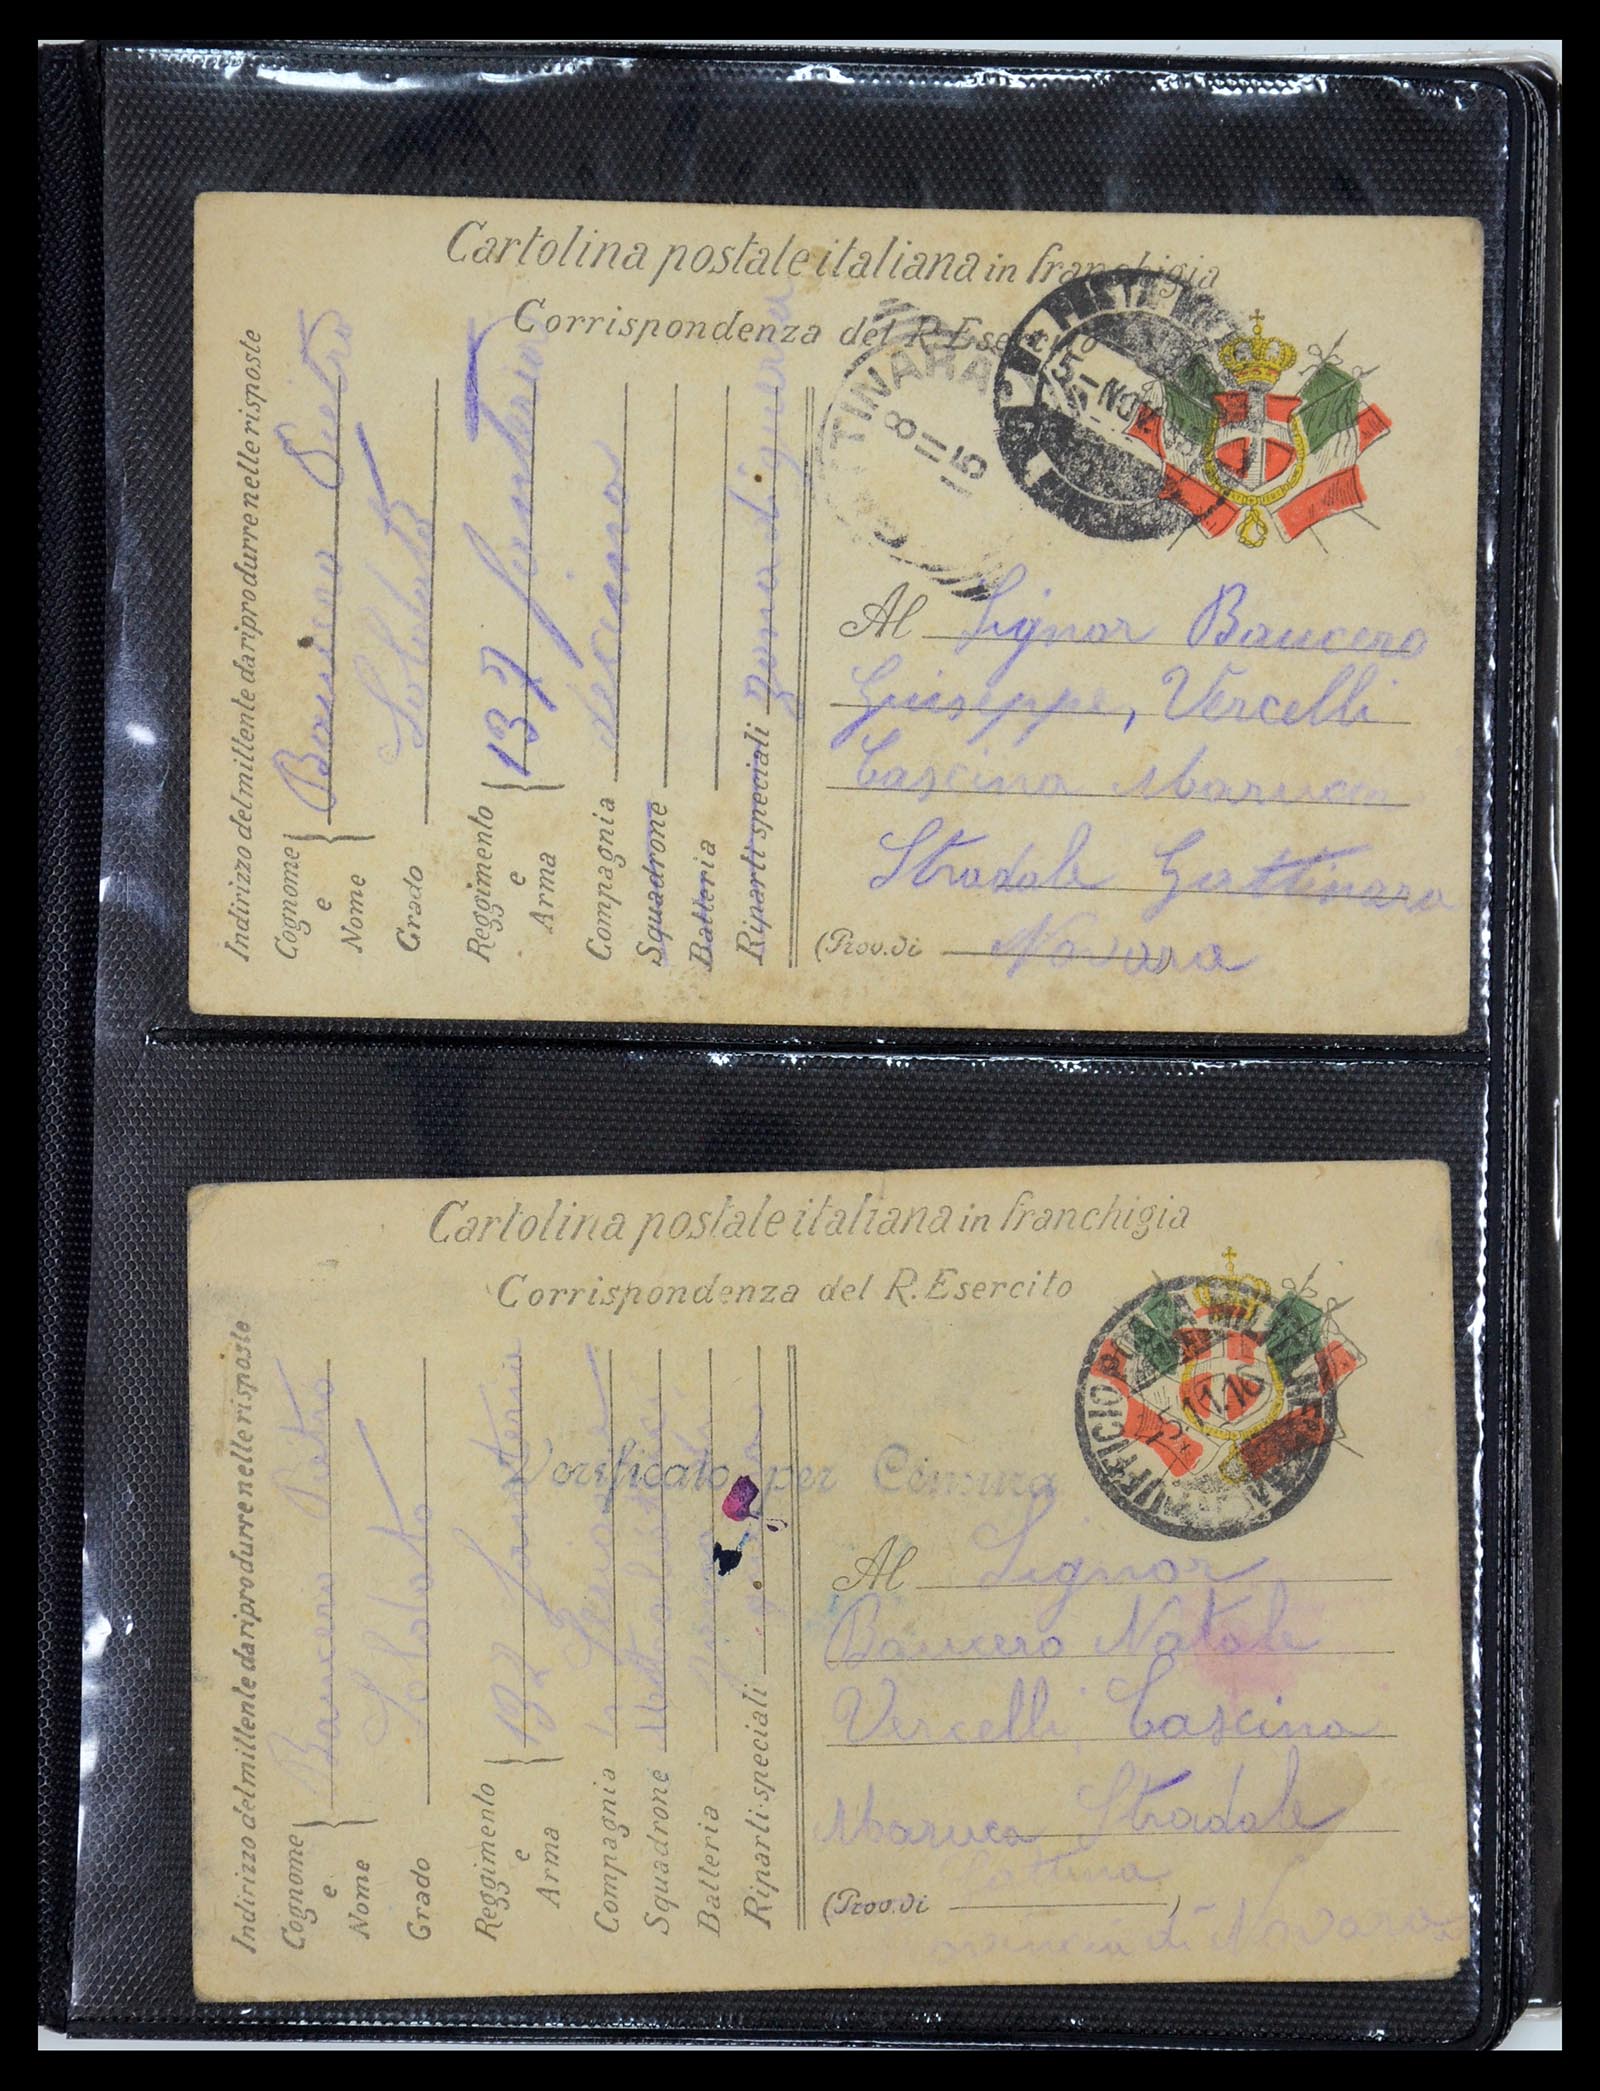 Cartolina postale italiana in franchigia
Corrispondenza del R. Esercito
Indirizzo del mittente da riprodurre nelle risposte
Cognome e Nome
Baucero Pietro
Grado
Soldato
Reggimento e Arma
137 fanteria
Compagnia
decima
Squadrone
Batteria
Riparti speciali
Zona di guerra
TINARA
8 11 15
POSTA MIL
15 NOV
Al Signor Baucero
Giuseppe, Vercelli
Cascina Maruca
Stradale Gattinara
(Prov. di Novara
Cartolina postale italiana in franchigia
Corrispondenza del R. Esercito
Indirizzo del mittente da riprodurre nelle risposte
Cognome e Nome
Baucero Pietro
Grado
Soldato
Reggimento e Arma
fanteria
Compagnia
Squadrone
Batteria
Riparti speciali
Verificato per Censura
UFFICIO POSTA MILITARE
5.11.16
Al Signor
Baucero Natale
Vercelli Cascina
Maruca Stradale
(Prov. di )
di Novara